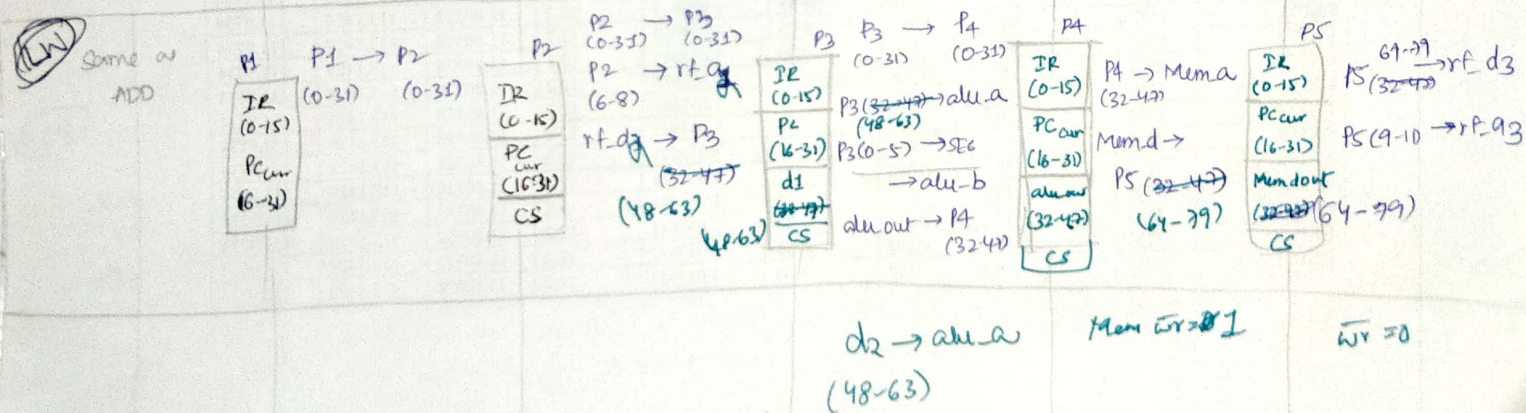 LW
Same as
ADD
P1
IR
(0-15)
PCcur
(16-31)
P1 → P2
(0-31) (0-31)
P2
IR
(0-15)
PC
cur
(16-31)
CS
P2 → P3
(0-31) (0-31)
P2 → rf_a2
(6-8)
rf_d2 → P3
(32-47)
(48-63)
P3
IR
(0-15)
PC
(16-31)
d1
(32-47)
(48-63)
CS
P3 → P4
(0-31) (0-31)
P3(32-47) → alu.a
(48-63)
P3(0-5) → SE6
→ alu-b
alu out → P4
(32-47)
P4
IR
(0-15)
PCcur
(16-31)
alu out
(32-47)
CS
P4 → Mem.a
(32-47)
Mem.d →
P5 (32-47)
(64-79)
P5
IR
(0-15)
PCcur
(16-31)
Mem dout
(32-47) (64-79)
CS
64-79
P5 (32-47) → rf_d3
P5 (9-11) → rf_a3
d2 → alu_a
(48-63)
Mem w̅r̅=1
w̅r̅ =0